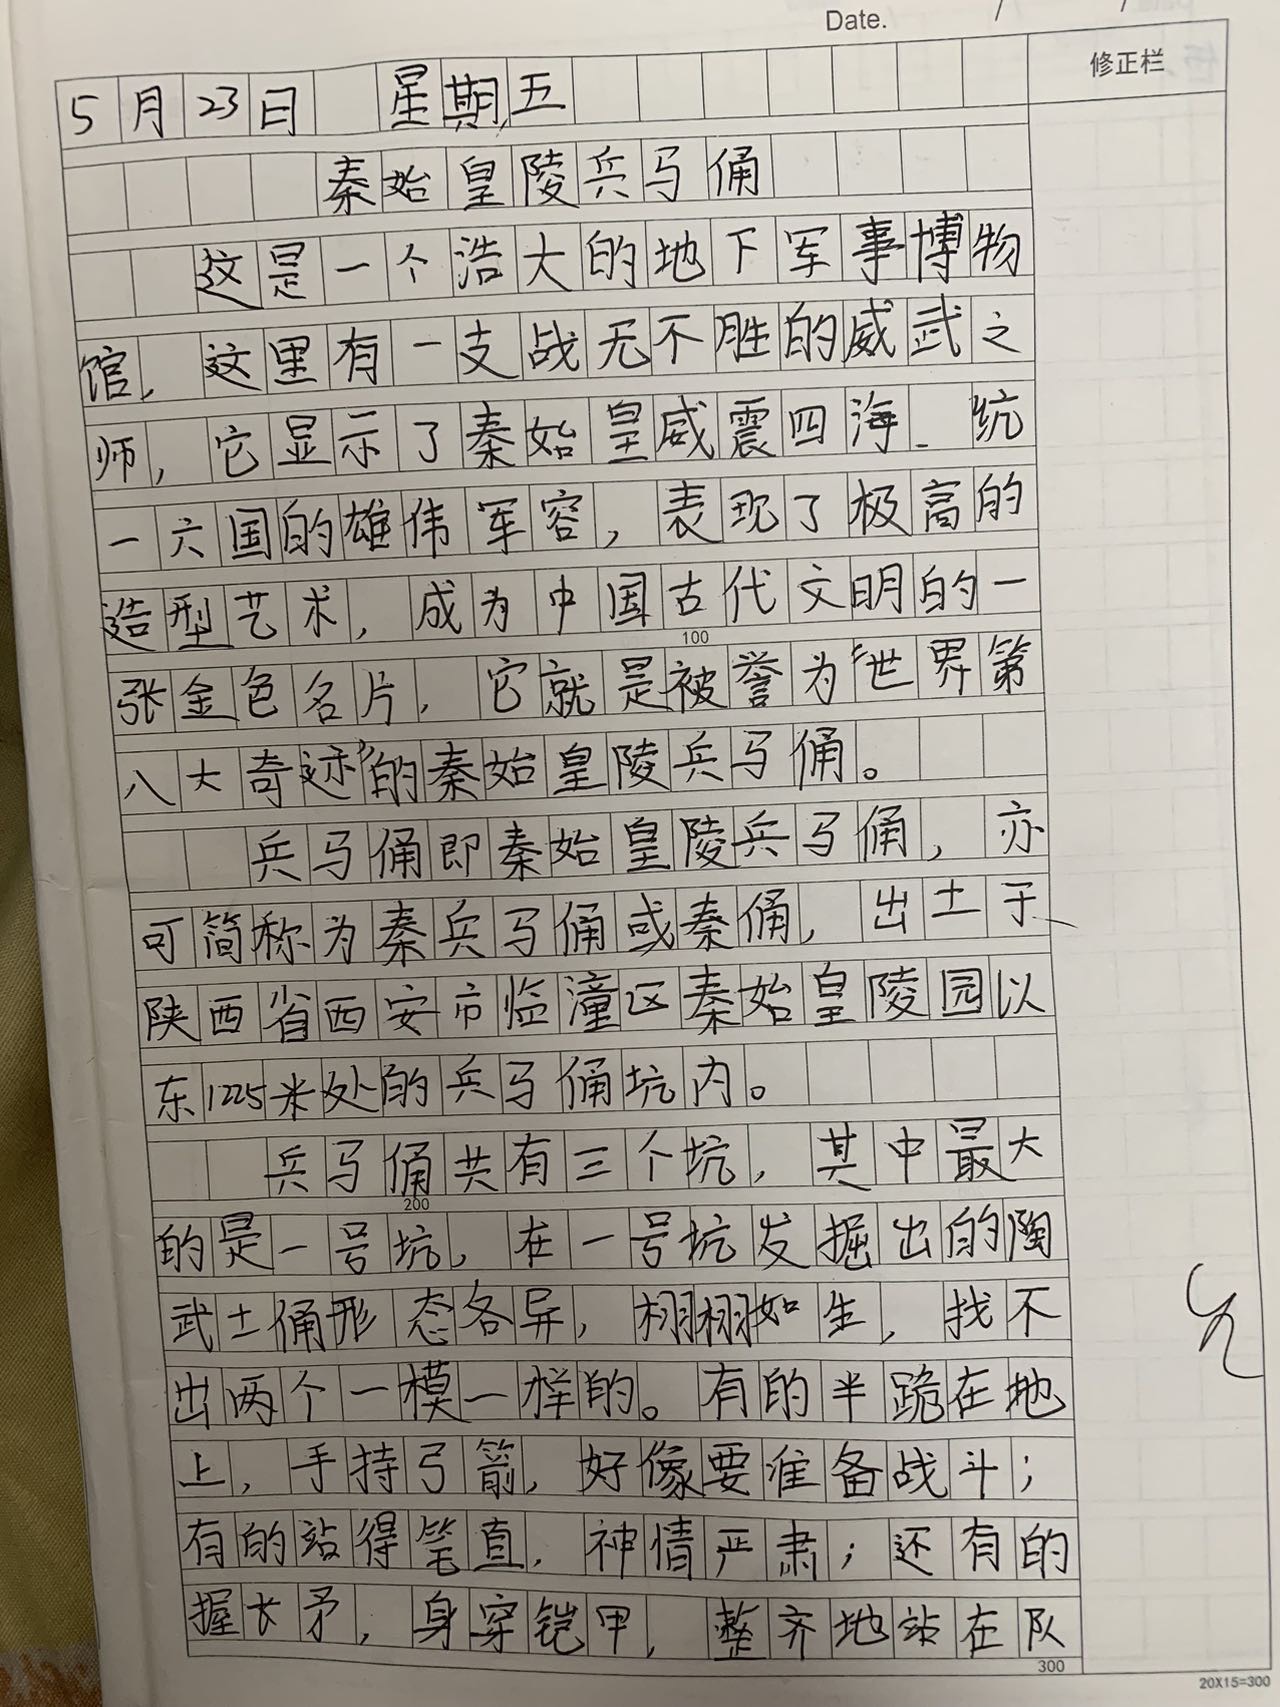 Date. / /
修正栏
5月23日 星期五
秦始皇陵兵马俑
这是一个浩大的地下军事博物
馆，这里有一支战无不胜的威武之
师，它显示了秦始皇威震四海、统
一六国的雄伟军容，表现了极高的
造型艺术，成为中国古代文明的一
100
张金色名片，它就是被誉为“世界第
八大奇迹”的秦始皇陵兵马俑。
兵马俑即秦始皇陵兵马俑，亦
可简称为秦兵马俑或秦俑，出土于
陕西省西安市临潼区秦始皇陵园以
东1225米处的兵马俑坑内。
兵马俑共有三个坑，其中最大
200
的是一号坑，在一号坑发掘出的陶
武士俑形态各异，栩栩如生，找不
出两个一模一样的。有的半跪在地
上，手持弓箭，好像要准备战斗；
有的站得笔直，神情严肃；还有的
握长矛，身穿铠甲，整齐地站在队
300
20X15=300